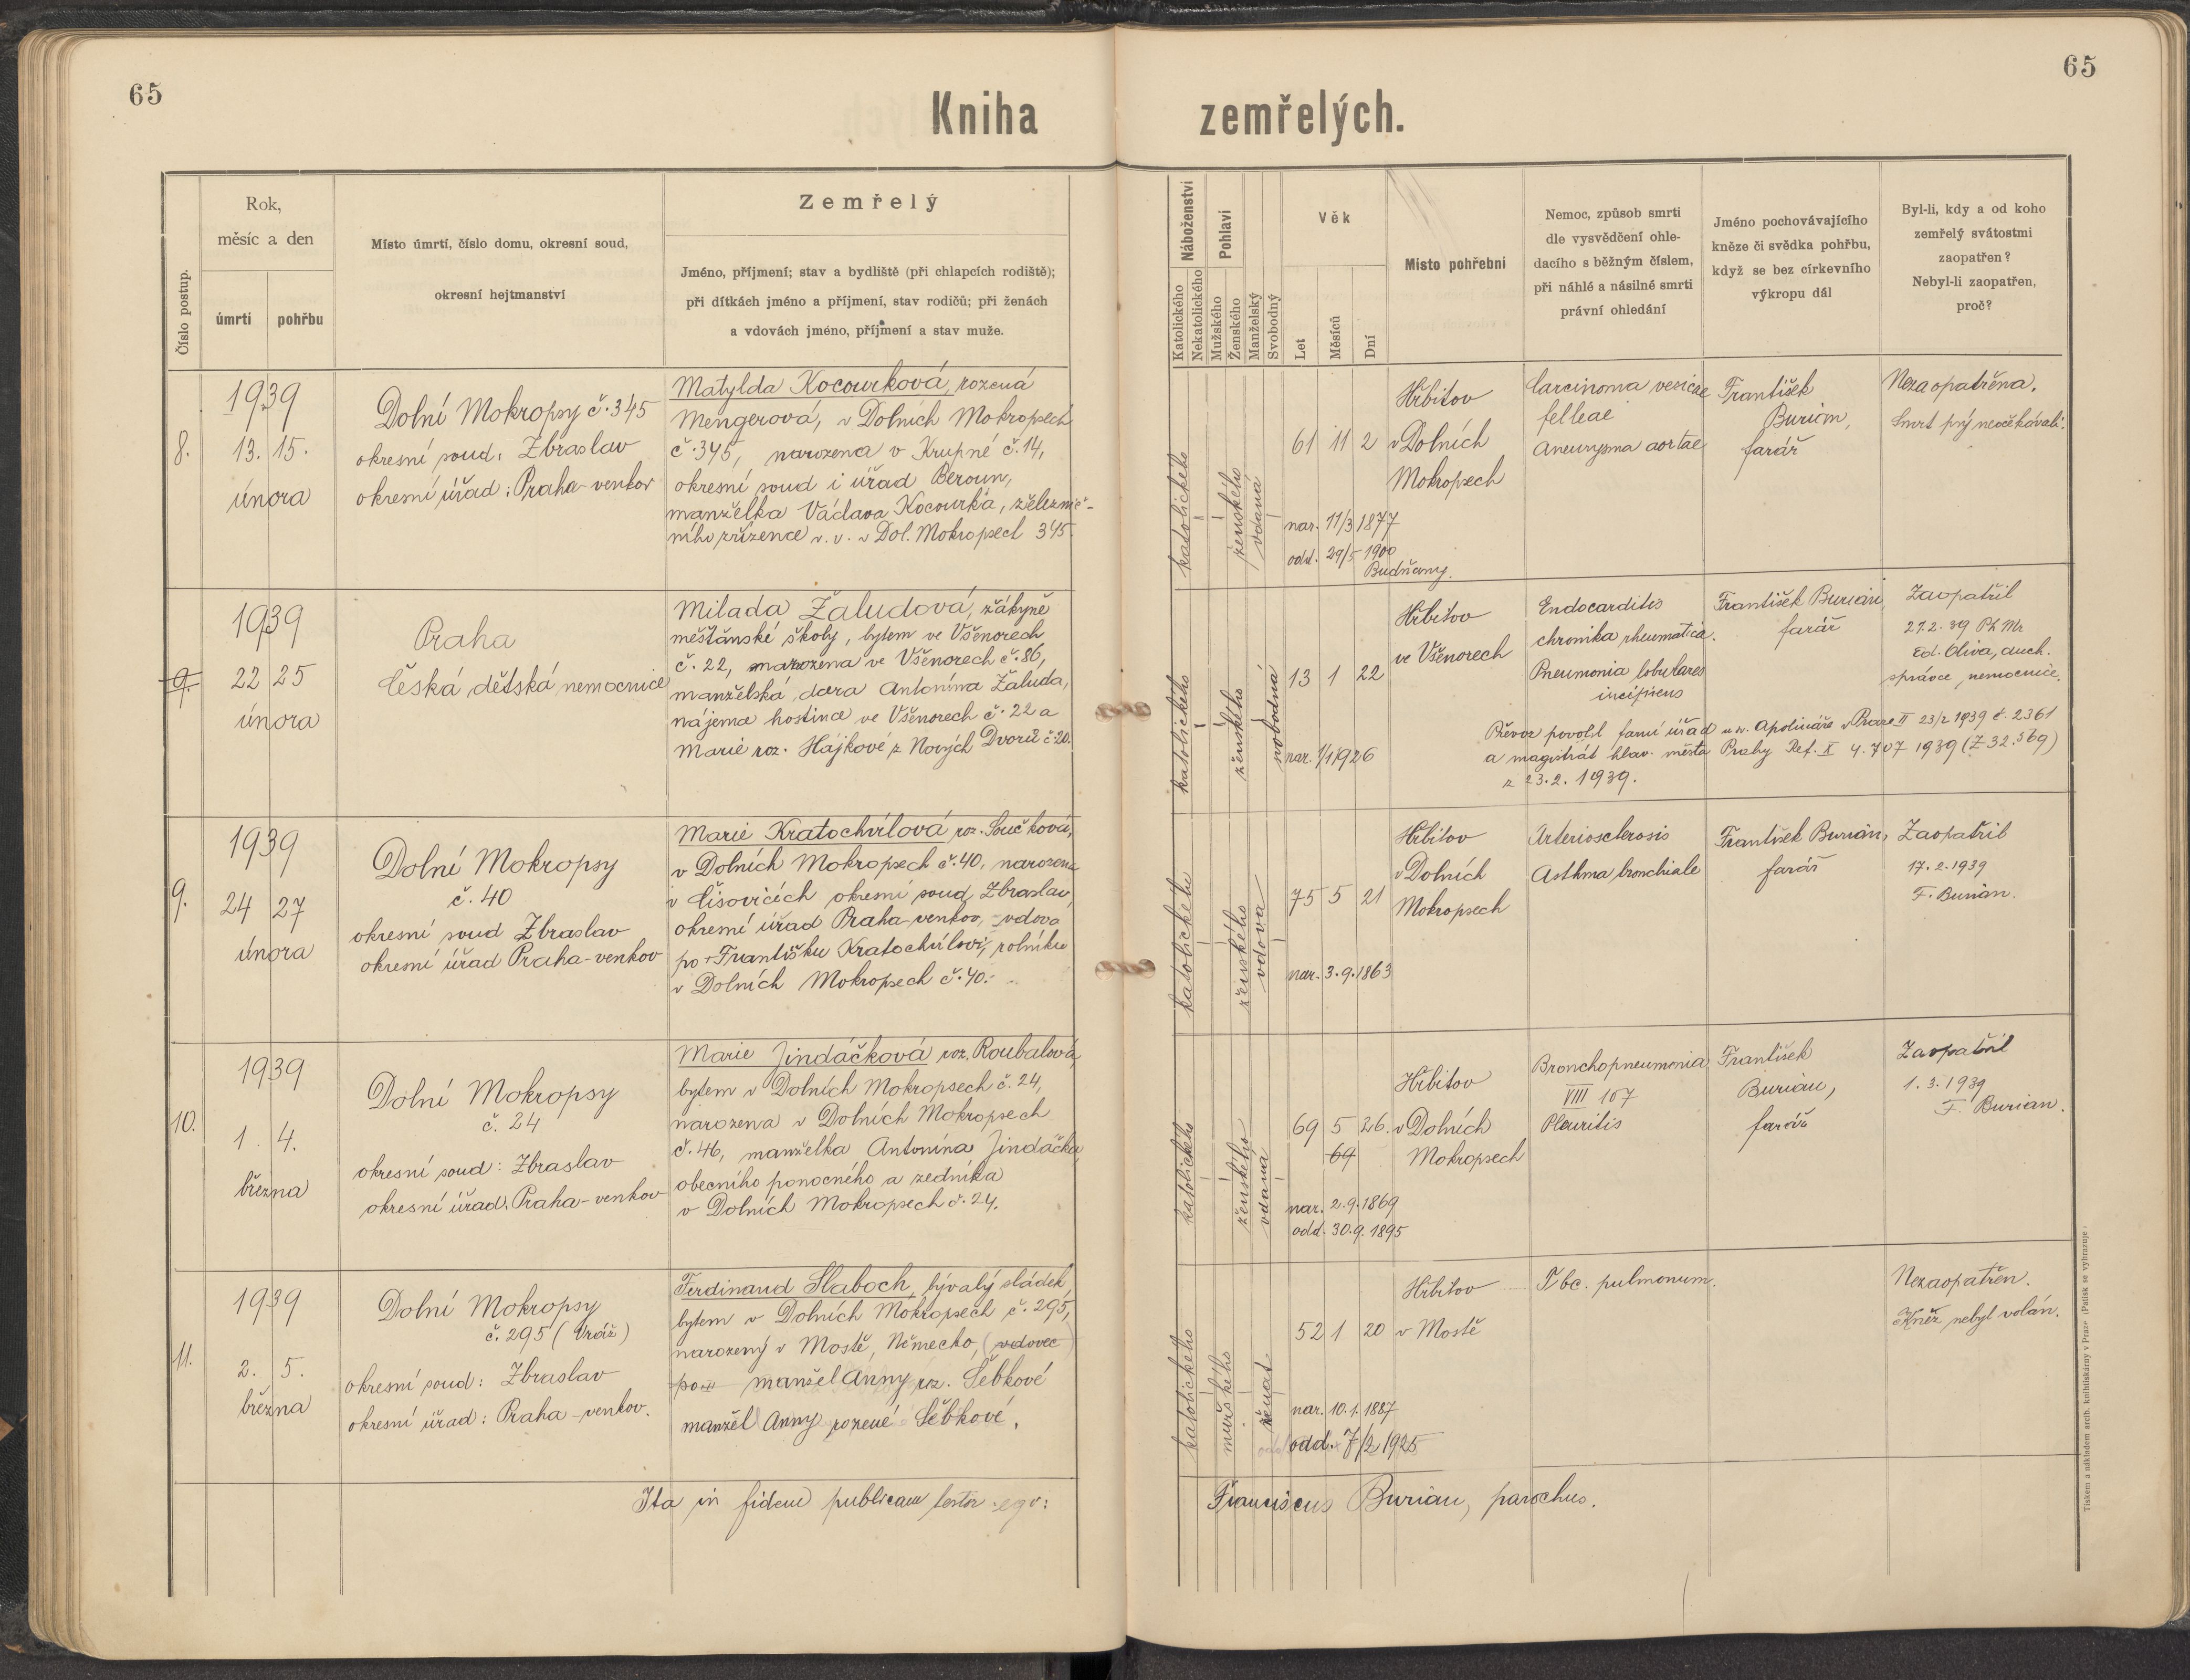 65
Kniha
Číslo postup.
Rok,
měsíc a den
úmrtí
pohřbu
Místo úmrtí, číslo domu, okresní soud,
okresní hejtmanství
Zemřelý
Jméno, příjmení; stav a bydliště (při chlapcích rodiště);
při dítkách jméno a příjmení, stav rodičů; při ženách
a vdovách jméno, příjmení a stav muže.
8.
1939
13. 15.
února
Dolní Mokropsy č. 345
okresní soud: Zbraslav
okresní úřad: Praha-venkov
Matylda Kocourková, rozená
Mengerová, v Dolních Mokropsech
č. 345, narozena v Krupné č. 14,
okresní soud i úřad Beroun,
manželka Václava Kocourka, železnič-
ního zřízence v. v. v Dol. Mokropsech 345.
9.
1939
22 25
února
Praha
Česká dětská nemocnice
Milada Žaludová, žákyně
měšťanské školy, bytem ve Všenorech
č. 22, narozena ve Všenorech č. 86,
manželská dcera Antonína Žaluda,
nájemce hostince ve Všenorech č. 22 a
Marie roz. Hájkové z Nových Dvorů č. 20.
9.
1939
24 27
února
Dolní Mokropsy
č. 40
okresní soud Zbraslav
okresní úřad Praha-venkov
Marie Kratochvílová roz. Součková,
v Dolních Mokropsech č. 40, narozena
v Čisovicích okresní soud Zbraslav,
okresní úřad Praha-venkov, vdova
po + Františku Kratochvílovi, rolníku
v Dolních Mokropsech č. 40.
10.
1939
1. 4.
března
Dolní Mokropsy
č. 24
okresní soud: Zbraslav
okresní úřad: Praha-venkov
Marie Jindáčková roz. Roubalová,
bytem v Dolních Mokropsech č. 24,
narozena v Dolních Mokropsech
č. 46, manželka Antonína Jindáčka,
obecního ponocného a zedníka
v Dolních Mokropsech č. 24.
11.
1939
2. 5.
března
Dolní Mokropsy
č. 295 (Vráž)
okresní soud: Zbraslav
okresní úřad: Praha-venkov.
Ferdinand Slaboch, bývalý sládek,
bytem v Dolních Mokropsech č. 295,
narozený v Mostě, Německo, (vdovec
po manžel Anny roz. Šebkové
manžel Anny rozené Šebkové.
Ita in fidem publicam testor ego:
65
zemřelých.
Náboženství
Katolického
Nekatolického
Pohlaví
Mužského
Ženského
Manželský
Svobodný
Věk
Let
Měsíců
Dní
Místo pohřební
Nemoc, způsob smrti
dle vysvědčení ohle-
dacího s běžným číslem,
při náhlé a násilné smrti
právní ohledání
Jméno pochovávajícího
kněze či svědka pohřbu,
když se bez církevního
výkropu dál
Byl-li, kdy a od koho
zemřelý svátostmi
zaopatřen?
Nebyl-li zaopatřen,
proč?
katolického
ženského
vdaná
61 11 2
nar. 11/3 1877
odd. 29/5 1900
Budňany.
Hřbitov
v Dolních
Mokropsech
Carcinoma vesicae
felleae
Aneurysma aortae
František
Burian,
farář
Nezaopatřena.
Smrt prý neočekávali.
katolického
ženského
svobodná
13 1 22
nar. 1/1 1926
Hřbitov
ve Všenorech
Endocarditis
chronika rheumatica.
Pneumonia lobulares
incipiens
František Burian,
farář
Zaopatřil
21.2.39 Ph Mr
Ed. Oliva, duch.
správce nemocnice.
Převoz povolil farní úřad u sv. Apolináře v Praze II 23/2 1939 č. 2361
a magistrát hlav. města Prahy Ref. X 4.707 1939 (Z 32.569)
z 23.2. 1939.
katolického
ženského
vdova
75 5 21
nar. 3.9.1863
Hřbitov
v Dolních
Mokropsech
Arteriosclerosis
Asthma bronchiale
František Burian,
farář
Zaopatřil
17.2.1939
F. Burian.
katolického
ženského
vdaná
69 5 26.
69
nar. 2.9.1869
odd. 30.9.1895
Hřbitov
v Dolních
Mokropsech
Bronchopneumonia
VIII 107
Pleuritis
František
Burian,
farář
Zaopatřil
1.3.1939
F. Burian.
katolického
mužského
ženat
52 1 20
nar. 10.1.1887
odd. 7/2 1925
Hřbitov
v Mostě
Tbc. pulmonum.
Nezaopatřen.
Kněz nebyl volán.
Franciscus Burian, parochus.
Tiskem a nákladem arcib. knihtiskárny v Praze. (Patisk se vyhrazuje.)